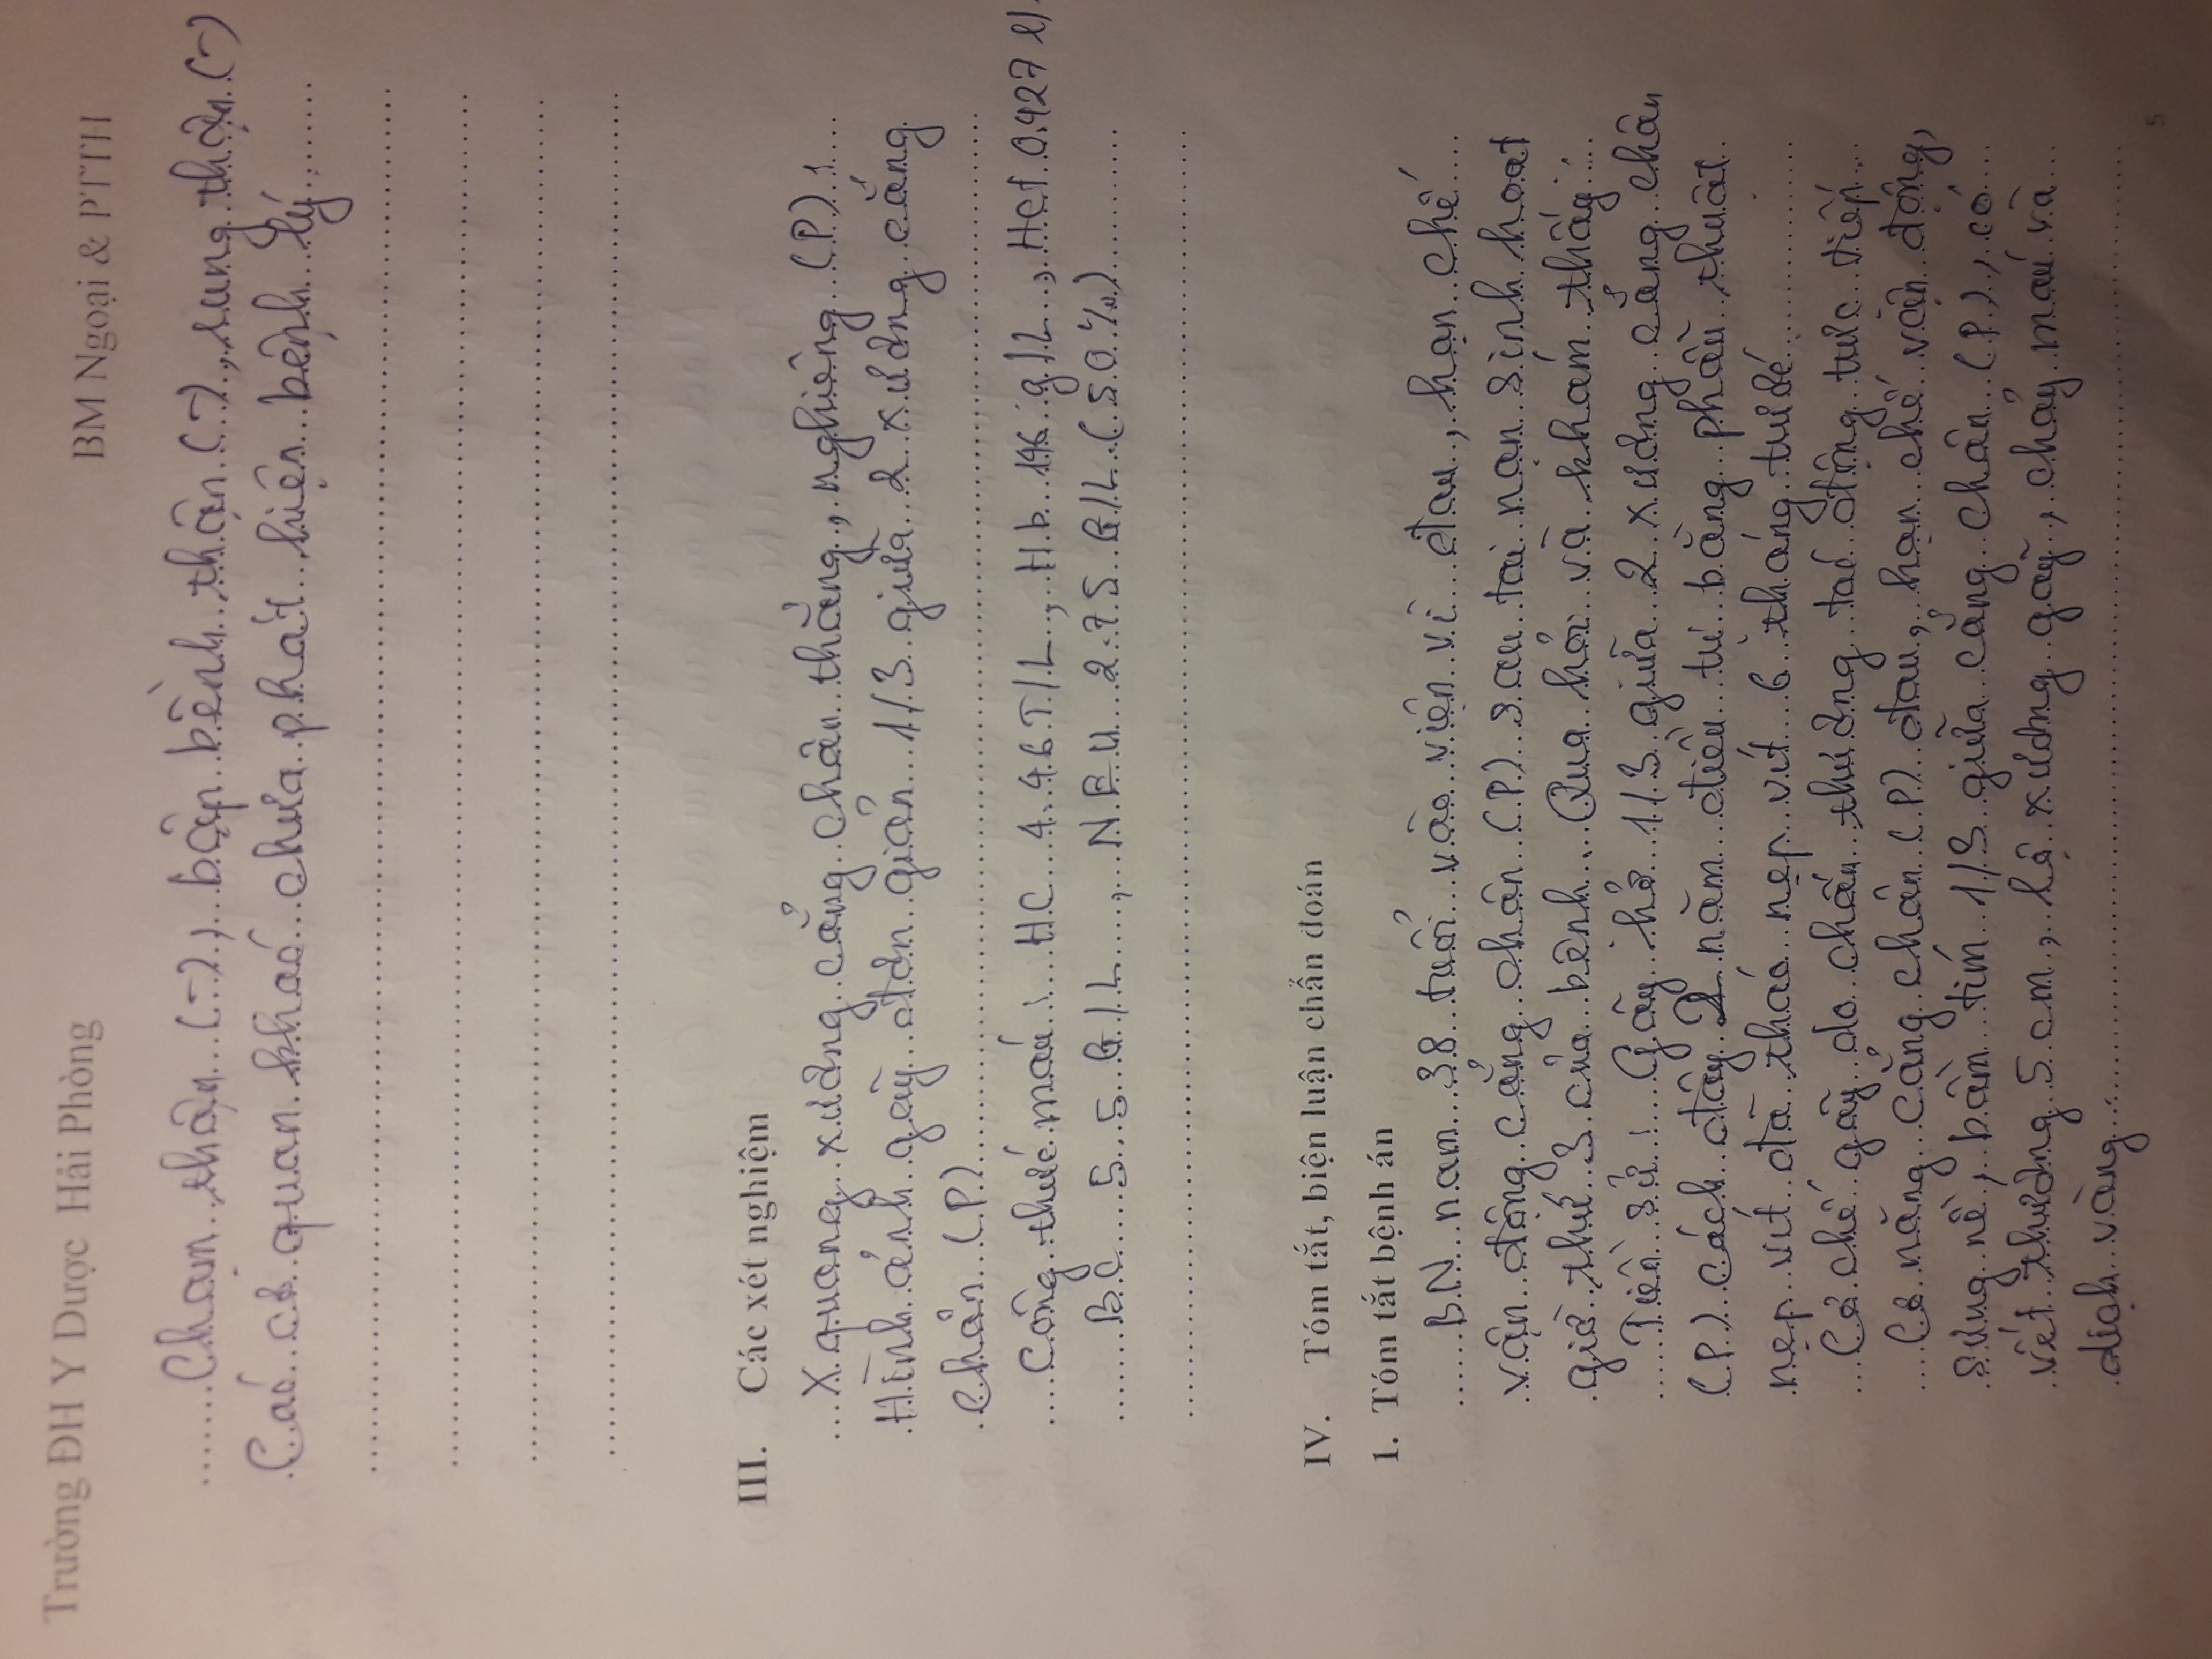 Trường ĐH Y Dược Hải Phòng
BM Ngoại & PTTH
Chạm thận (-), bập bềnh thận (-), rung thận (-)
Các cơ quan khác chưa phát hiện bệnh lý
III. Các xét nghiệm
X quang xương cẳng chân thẳng, nghiêng (P):
Hình ảnh gãy đơn giản 1/3 giữa 2 xương cẳng
chân (P)
Công thức máu: HC 4.46 T/L, Hb 146 g/L, Hct 0.427 l/
BC 5.5 G/L, NEU 2.75 G/L (50%)
IV. Tóm tắt, biện luận chẩn đoán
1. Tóm tắt bệnh án
BN nam 38 tuổi vào viện vì đau, hạn chế
vận động cẳng chân (P) sau tai nạn sinh hoạt
giờ thứ 3 của bệnh. Qua hỏi và khám thấy:
Tiền sử: Gãy hở 1/3 giữa 2 xương cẳng chân
(P) cách đây 2 năm điều trị bằng phẫu thuật
nẹp vít đã tháo nẹp vít 6 tháng trước
Cơ chế gãy do chấn thương tác động trực tiếp
Cơ năng cẳng chân (P) đau, hạn chế vận động,
sưng nề, bầm tím 1/3 giữa cẳng chân (P), có
vết thương 5 cm, lộ xương gãy, chảy máu và
dịch vàng
5